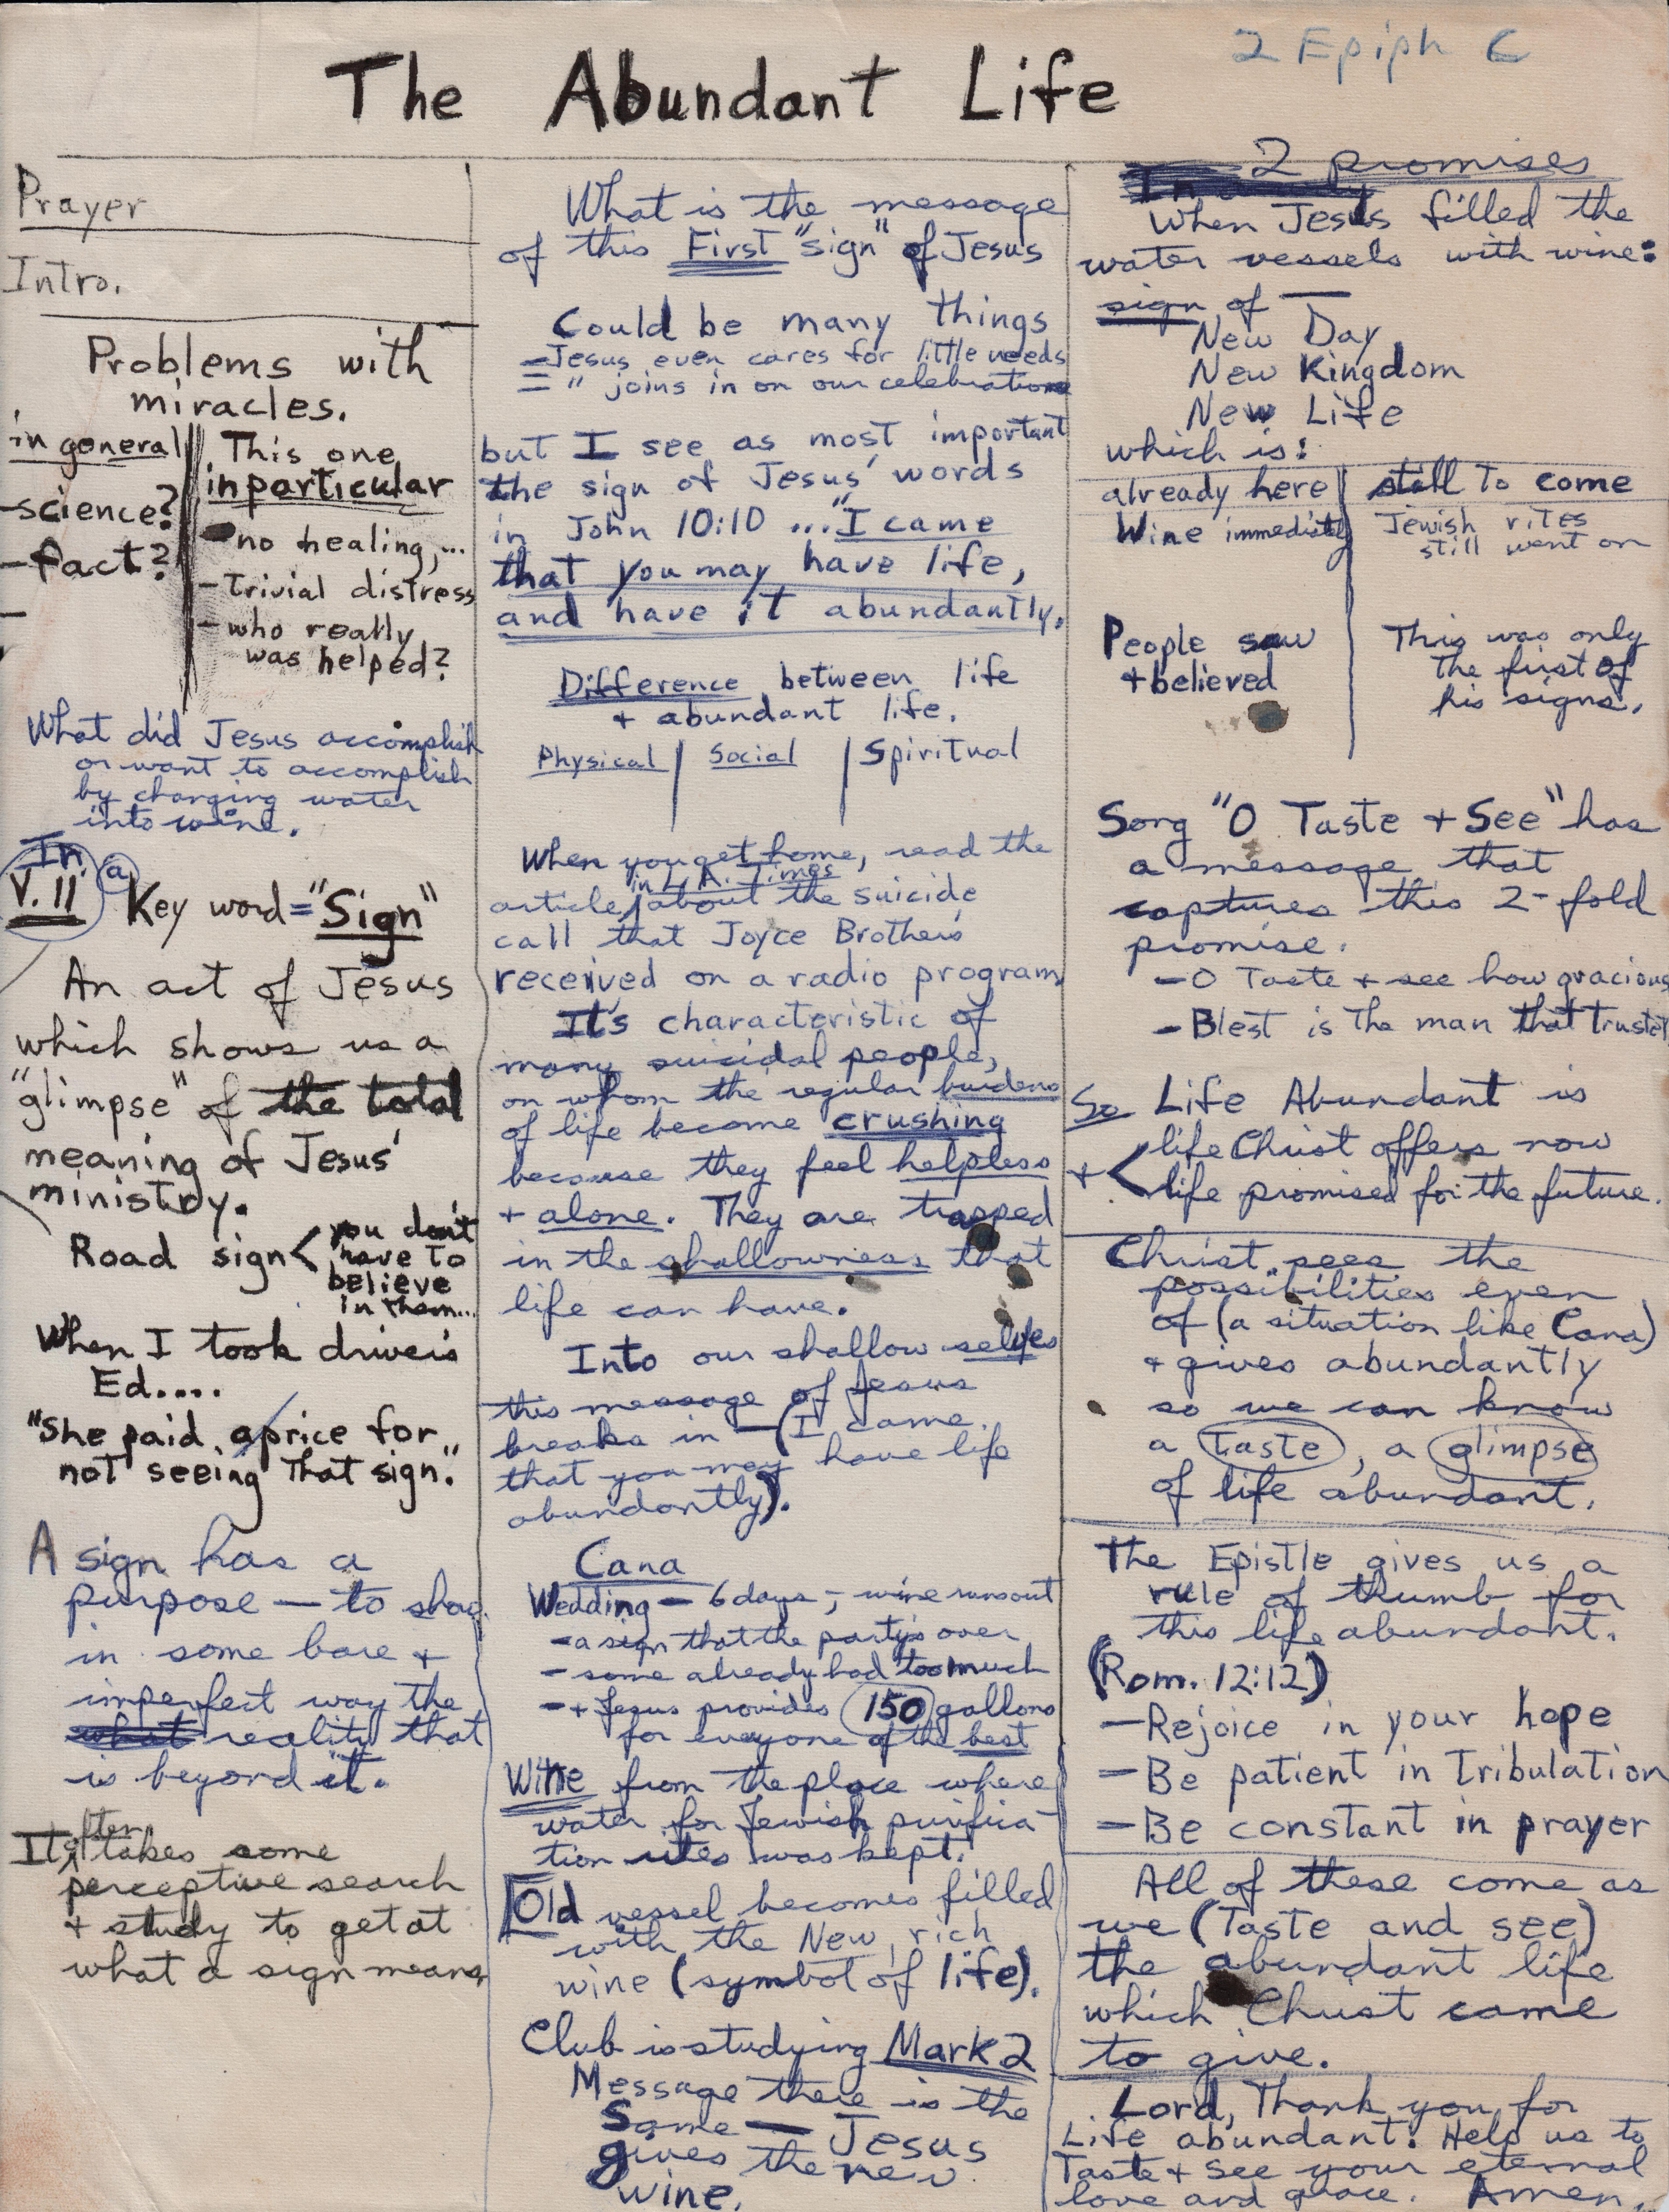 2 Epiph C
The Abundant Life
Prayer
Intro.
Problems with
miracles.
in general
-science?
-fact?
-
This one
in particular
-no healing,...
-trivial distress
-who really
was helped?
What did Jesus accomplish
or want to accomplish
by changing water
into wine.
In
V. 11 a
Key word = "Sign"
An act of Jesus
which shows us a
"glimpse" of the total
meaning of Jesus'
ministry.
Road sign < you don't
have to
believe
in them...
When I took driver's
Ed....
"She paid a price for
not seeing that sign."
A sign has a
purpose — to show
in some bare +
imperfect way the
what reality that
is beyond it.
It often takes some
perceptive search
+ study to get at
what a sign means
What is the message
of this First "sign" of Jesus
Could be many things
- Jesus even cares for little needs
= " joins in on our celebrations
but I see as most important
the sign of Jesus' words
in John 10:10 ..."I came
that you may have life,
and have it abundantly.
Difference between life
+ abundant life.
Physical | Social | Spiritual
When you get home, read the
in L.A. Times
article about the suicide
call that Joyce Brothers
received on a radio program
It's characteristic of
many suicidal people,
on whom the regular burdens
of life become crushing
because they feel helpless
+ alone. They are trapped
in the shallowness that
life can have.
Into our shallow selves
this message of Jesus
breaks in — (I came
that you may have life
abundantly).
Cana
Wedding — 6 days, - wine runs out
- a sign that the party's over
- some already had too much
- + Jesus provides 150 gallons
for everyone of the best
Wine from the place where
water for Jewish purifica-
tion rites was kept.
Old vessel becomes filled
with the New, rich
wine (symbol of life).
Club is studying Mark 2
Message there is the
Same — Jesus
gives the new
wine.
In a 2 promises
When Jesus filled the
water vessels with wine:
sign of —
New Day
New Kingdom
New Life
which is:
already here | still To come
Wine immediately | Jewish rites
still went on
People saw
+ believed
This was only
the first of
his signs.
Song "O Taste + See" has
a message that
captures this 2-fold
promise.
- O Taste + see how gracious
- Blest is the man that trusteth
So Life Abundant is
+ < life Christ offers now
life promised for the future.
Christ sees the
possibilities even
of (a situation like Cana)
+ gives abundantly
so we can know
a taste, a glimpse
of life abundant.
The Epistle gives us a
rule of thumb for
this life abundant.
(Rom. 12:12)
- Rejoice in your hope
- Be patient in tribulation
- Be constant in prayer
All of these come as
we (Taste and see)
the abundant life
which Christ came
to give.
Lord, Thank you for
Life abundant. Help us to
Taste + See your eternal
love and grace. Amen.